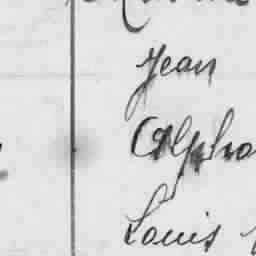 Jean
Alpho
Louis